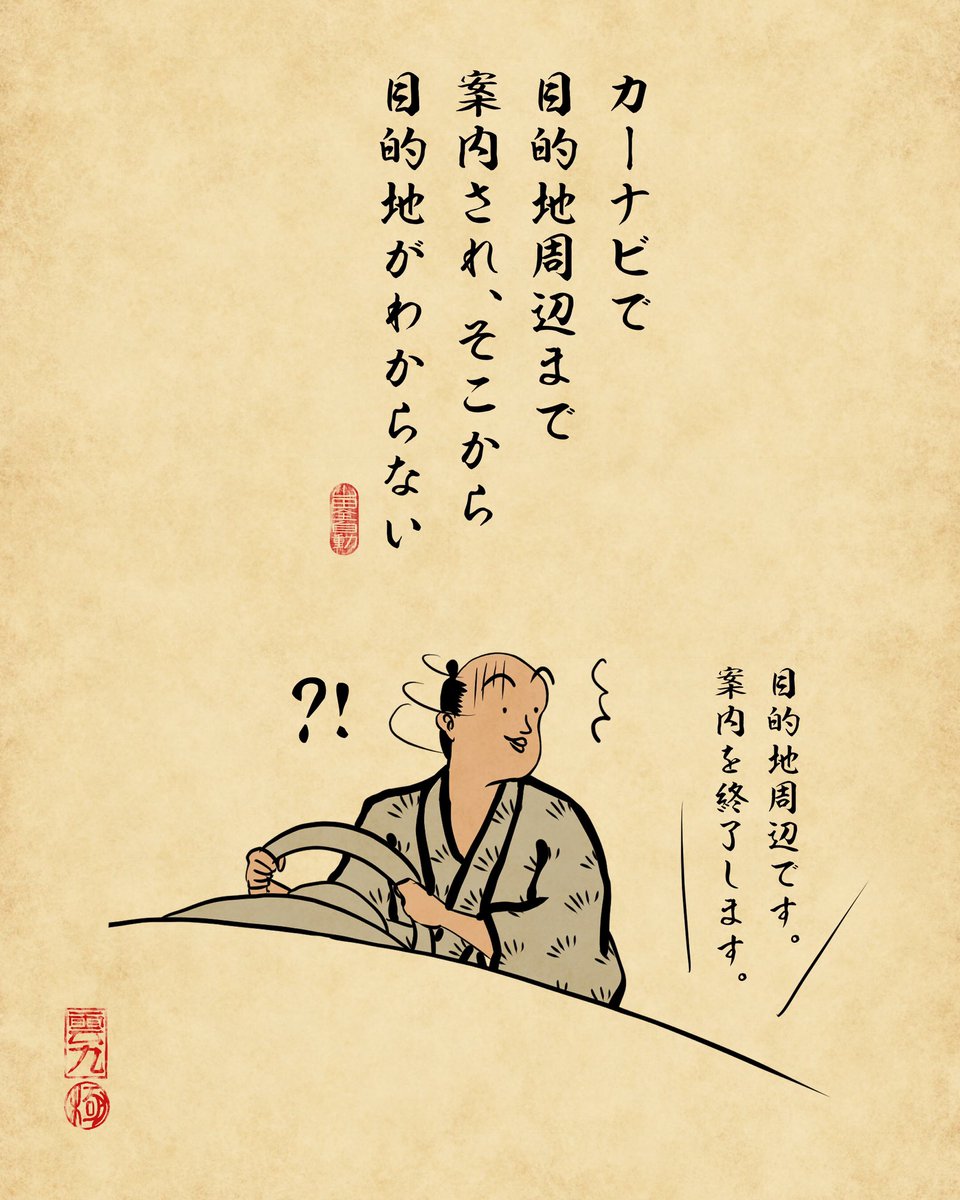 カーナビで
目的地周辺まで
案内され、そこから
目的地がわからない
目的地周辺です。
案内を終了します。
?!